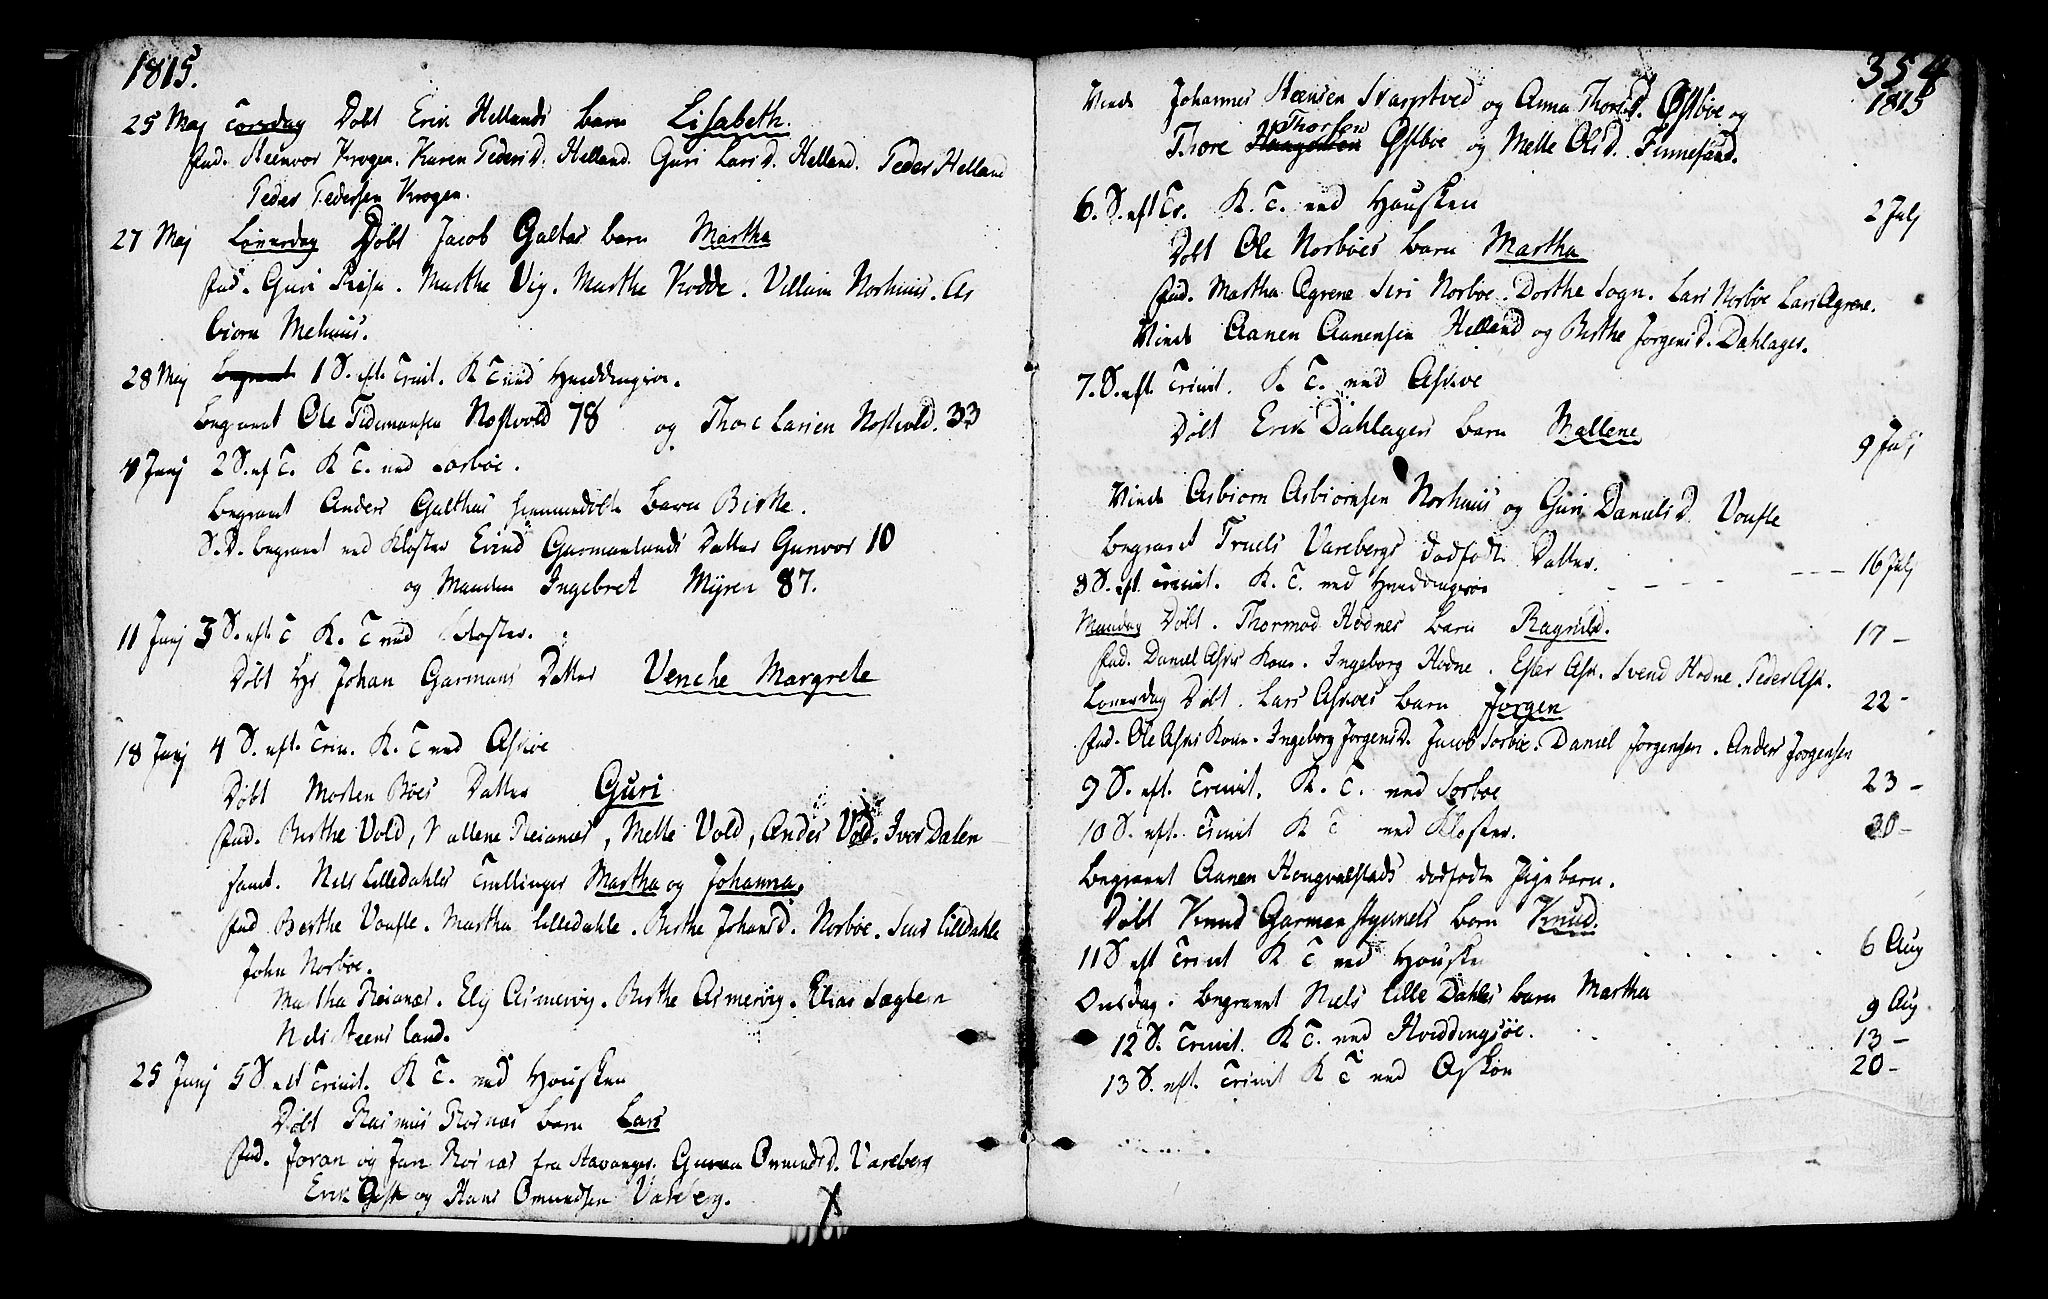 1815.
25 Maj Torsdag Døbt Erik Hellands barn Lisabeth.
Fad. Steenvor Krogen. Karen Peders D. Helland. Guri Lars D. Helland. Peder Helland
Peder Pedersen Krogen.
27 Maj Löverdag Døbt Jacob Galtas barn Martha
Fad. Guri Reisa. Marthe Vig. Marthe Todde. Villum Norhuus. As
biorn Mehuus.
28 Maj Begravet 1 S. eft. Trinit. K T. ved Hviddingsøe.
Begravet Ole Tidemansen Nostvold 78 og Thore Larsen Nostvold. 33
4 Junj 2 S. ef T. K T. ved Sørbøe.
Begravet Anders Galthas hiemmedøbte barn Birthe.
S. D. begravet ved Kloster Evind Garmanlands Datter Gunvor 10
og Manden Ingebret Myren 87.
11 Junj 3 S. eft. T K. T ved Kloster.
Døbt Hr Johan Garmans Datter Venche Margrete
18 Junj 4 S. eft. Trin. K. T ved Askøe
Døbt Morten Bøes Datter Guri
Fad. Berthe Vold, Mallene Reianæs, Mette Vold, Andes Vold. Iver Dalen
samt. Nels Lilledahles Tvillinger Martha og Johanna.
Fad Berthe Voufle. Martha Lilledahle. Berthe Johans D. Norbøe. Lilledahle
John Norbøe.
Martha Reianæs. Ely Asmervig. Berthe Asmervig. Elias Sæglem
Nels Steensland.
25 Junj 5 S. eft Trinit. K T. ved Housken
Døbt Rasmus Rosnæs barn Lars
Fad. Joran og Jan Rosnæs fra Stavanger. Guroa Omunds D. Vareberg
Erik Ask og Hans Omundsen Vareberg.
354
1815
Viede Johannes Steensen Svarstved og Anna Thors D. Østbøe og
Thorsen
Thore Østbøe og Mette Ols D. Finnesand.
6. S. eft Tr. K. T. ved Housken 2 Julj
Døbt Ole Norbøes barn Martha
Fad. Martha Agrene Siri Norbøe. Dorthe Sogn. Lars Norbøe Lars Agrene.
Viede Aanen Aanensen Helland og Berthe Jørgens D. Dahlager.
7. S. eft. Trinit. K. T. ved Askøe
Døbt Erik Dahlagers barn Mallene 9 Julj
Viede Asbiorn Asbiornsen Norhuus og Guri Daniels D. Voufle
Begravet Truels Varebergs dødfødte Datter.
8 S. eft Trinit. K. T. ved Hviddingsøe 16 Julj
Mandag Døbt. Thormod Hodnes barn Ragnild. 17 -
Fad. Daniel Asks Kone. Ingeborg Hodne. Ester Ask. Svend Hodne. Peder Ask.
Löverdag Døbt. Lars Askøes barn Jørgen 22 -
Fad. Ole Asks Kone. Ingeborg Jørgens D. Jacob Sørbøe. Daniel Jørgensen. Anders Jørgensen
9 S. eft. Trinit. K. T. ved Sørbøe 23 -
10 S. eft. Trinit K T ved Kloster. 30 -
Begravet Aanen Hougvalstads dødfødte Pigebarn.
Døbt Knud Garmanstyvnels barn Knud.
11 S eft Trinit K T ved Housken 6 Aug
Onsdag. begravet Niels Lille Dahles barn Martha 9 Aug
12 S. Trinit. K T. ved Hviddingsöe. 13 -
13 S. eft. Trinit K T ved Askön 20 -